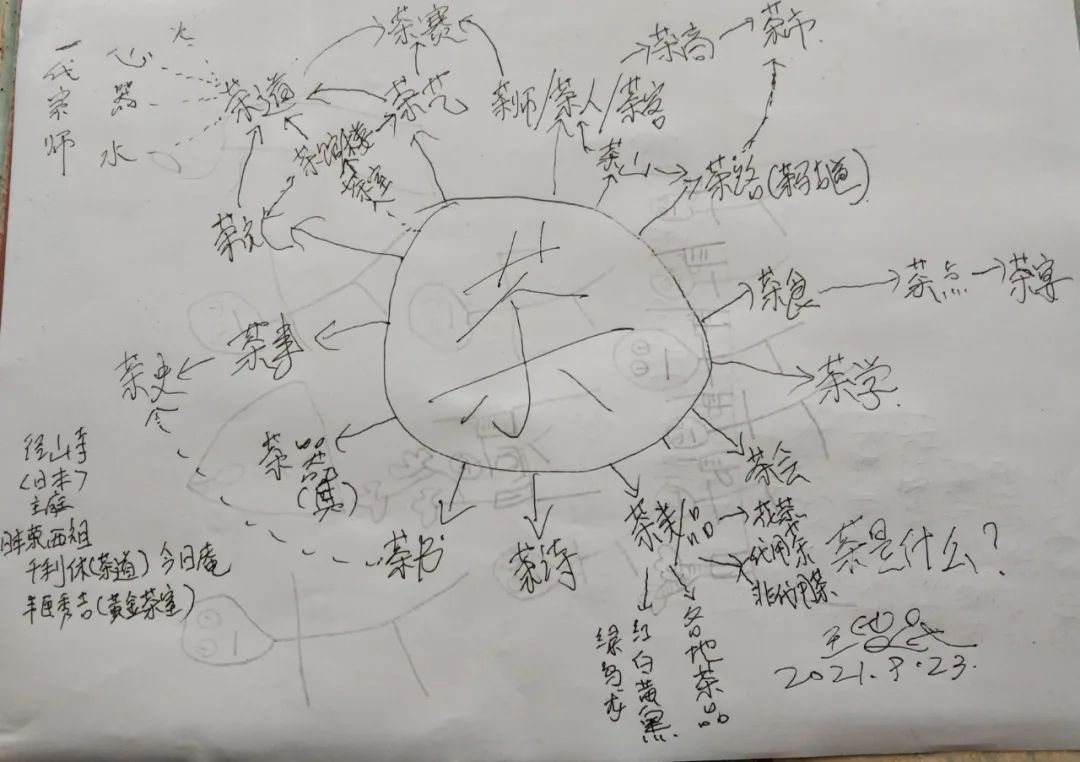 一代宗师
心
火
器
水
茶道
茶赛
茶艺
茶师/茶人/茶客
茶商
茶市
茶馆/楼
茶室
茶山
茶路(茶马古道)
茶
茶食
茶点
茶宴
茶事
茶史
茶学
茶会
茶器
(具)
茶书
茶诗
茶类/品
花茶
代用茶
非代用茶
各地茶品
红白黄黑
绿乌龙
径山寺
(日本)
千利休(茶道)今日庵
丰臣秀吉(黄金茶室)
茶是什么?
2021.9.23.